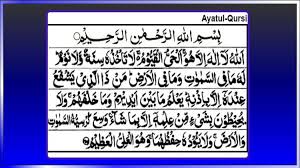 Ayatul-Qursi
بِسْمِ اللهِ الرَّحْمٰنِ الرَّحِيْمِ
اَللهُ لَاۤ اِلٰهَ اِلَّا هُوَ اَلْحَیُّ الْقَیُّوْمُ لَا تَاْخُذُهٗ سِنَةٌ وَّلَا نَوْمٌ
لَهٗ مَا فِی السَّمٰوٰتِ وَمَا فِی الْاَرْضِ مَنْ ذَا الَّذِیْ یَشْفَعُ
عِنْدَهٗۤ اِلَّا بِاِذْنِهٖ یَعْلَمُ مَا بَیْنَ اَیْدِیْهِمْ وَمَا خَلْفَهُمْ وَلَا
یُحِیْطُوْنَ بِشَیْءٍ مِّنْ عِلْمِهٖۤ اِلَّا بِمَا شَآءَ وَسِعَ كُرْسِیُّهُ السَّمٰوٰتِ
وَالْاَرْضَ وَلَا یَئُوْدُهٗ حِفْظُهُمَا وَهُوَ الْعَلِیُّ الْعَظِیْمُ